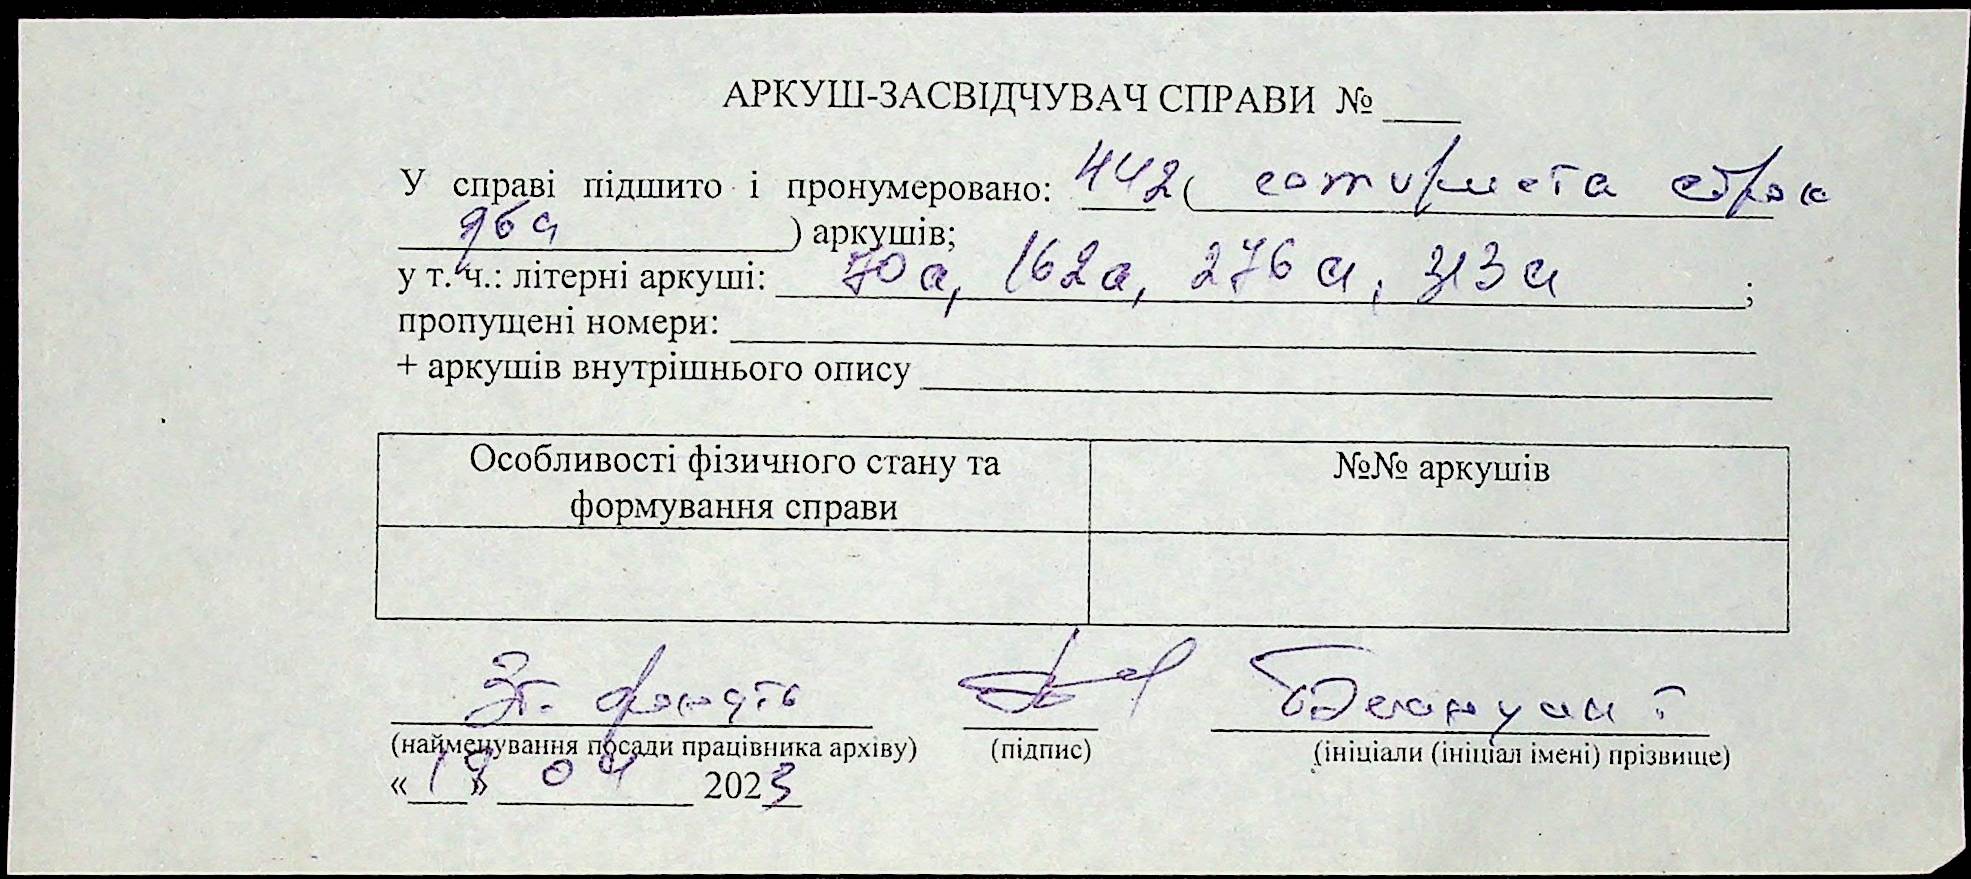 АРКУШ-ЗАСВІДЧУВАЧ СПРАВИ № ____
У справі підшито і пронумеровано: 442 ( чотириста сорок
два ) аркушів;
у т. ч.: літерні аркуші: 70а, 162а, 276а, 313а ;
пропущені номери:
+ аркушів внутрішнього опису
Особливості фізичного стану та
формування справи
№№ аркушів
Зб. фондів
(найменування посади працівника архіву) (підпис) (ініціали (ініціал імені) прізвище)
«19» 04 2023